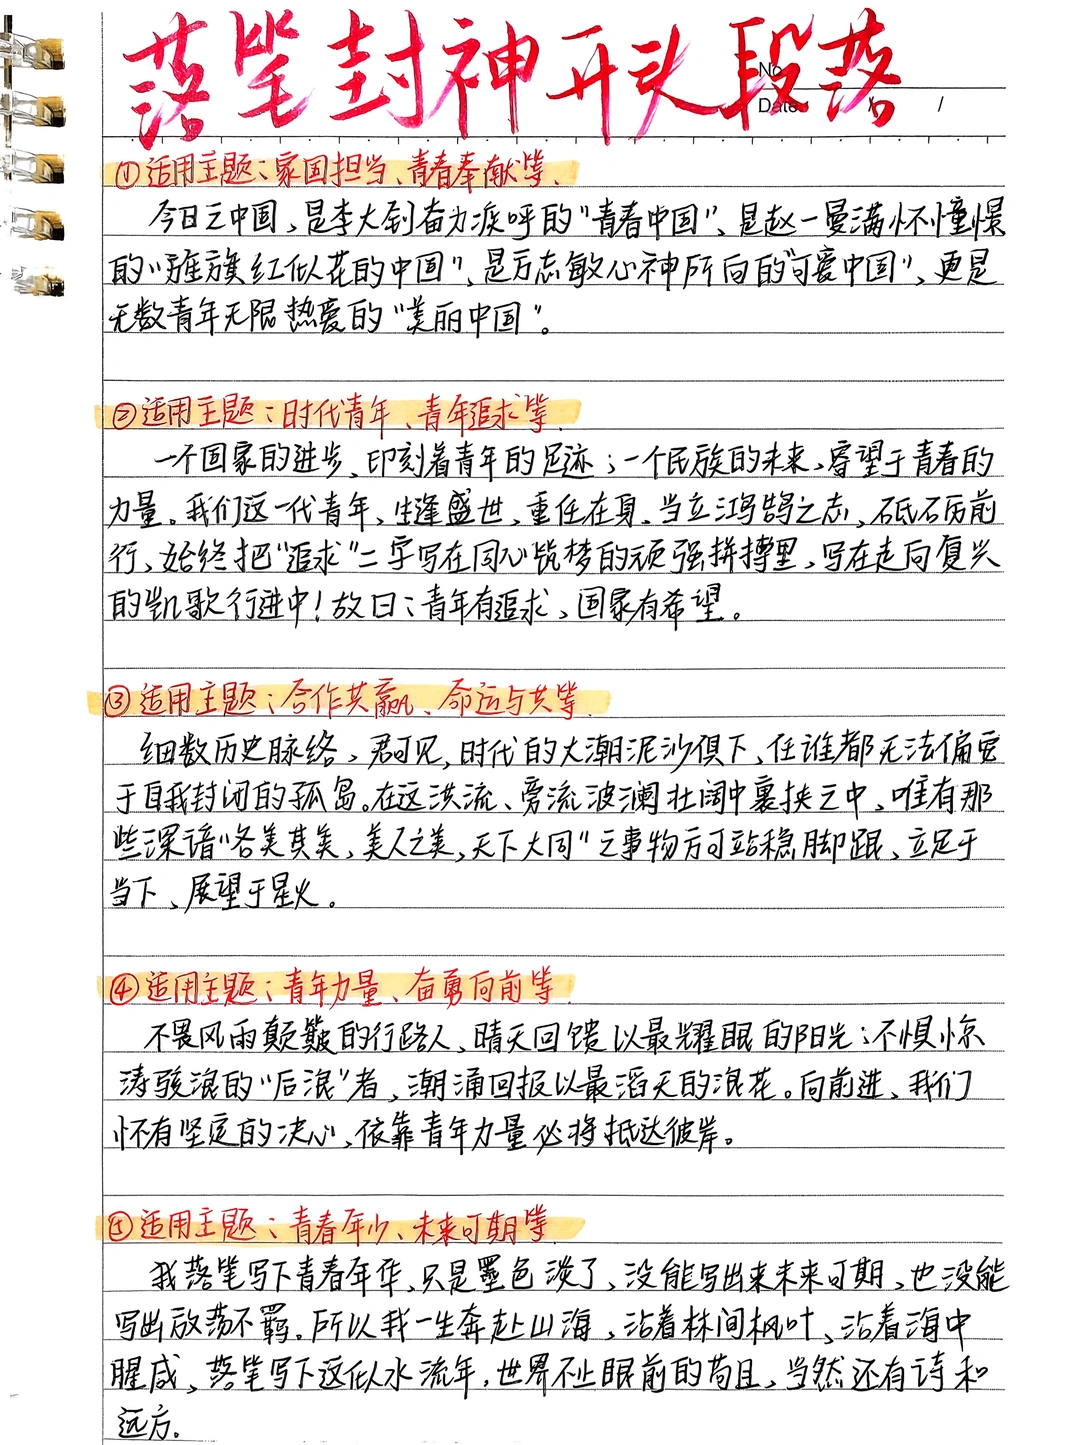 落笔封神开头段落
No.
Date / /
①适用主题:家国担当、青春奉献等.
今日之中国,是李大钊奋力疾呼的“青春中国”,是赵一曼满怀憧憬
的“旌旗红似花的中国”,是方志敏心神所向的“可爱中国”,更是
无数青年无限热爱的“美丽中国”。
②适用主题:时代青年、青年追求等.
一个国家的进步,印刻着青年的足迹;一个民族的未来,寄望于青春的
力量。我们这一代青年,生逢盛世,重任在身,当立鸿鹄之志,砥砺前
行,始终把“追求”二字写在同心筑梦的顽强拼搏里,写在走向复兴
的凯歌行进中!故曰:青年有追求,国家有希望。
③适用主题:合作共赢、命运与共等.
细数历史脉络,君可见,时代的大潮泥沙俱下,任谁都无法偏安
于自我封闭的孤岛。在这洪流、旁流波澜壮阔中裹挟之中,唯有那
些深谙“各美其美,美人之美,天下大同”之事物方可站稳脚跟,立足于
当下,展望于星火。
④适用主题:青年力量、奋勇向前等.
不畏风雨颠簸的行路人,晴天回馈以最耀眼的阳光;不惧惊
涛骇浪的“后浪”者,潮涌回报以最滔天的浪花。向前进,我们
怀有坚定的决心,依靠青年力量必将抵达彼岸。
⑤适用主题:青春年少、未来可期等.
我落笔写下青春年华,只是墨色淡了,没能写出来未来可期,也没能
写出放荡不羁。所以我一生奔赴山海,沿着林间枫叶,沿着海中
腥咸,落笔写下这似水流年,世界不止眼前的苟且,当然还有诗和
远方。